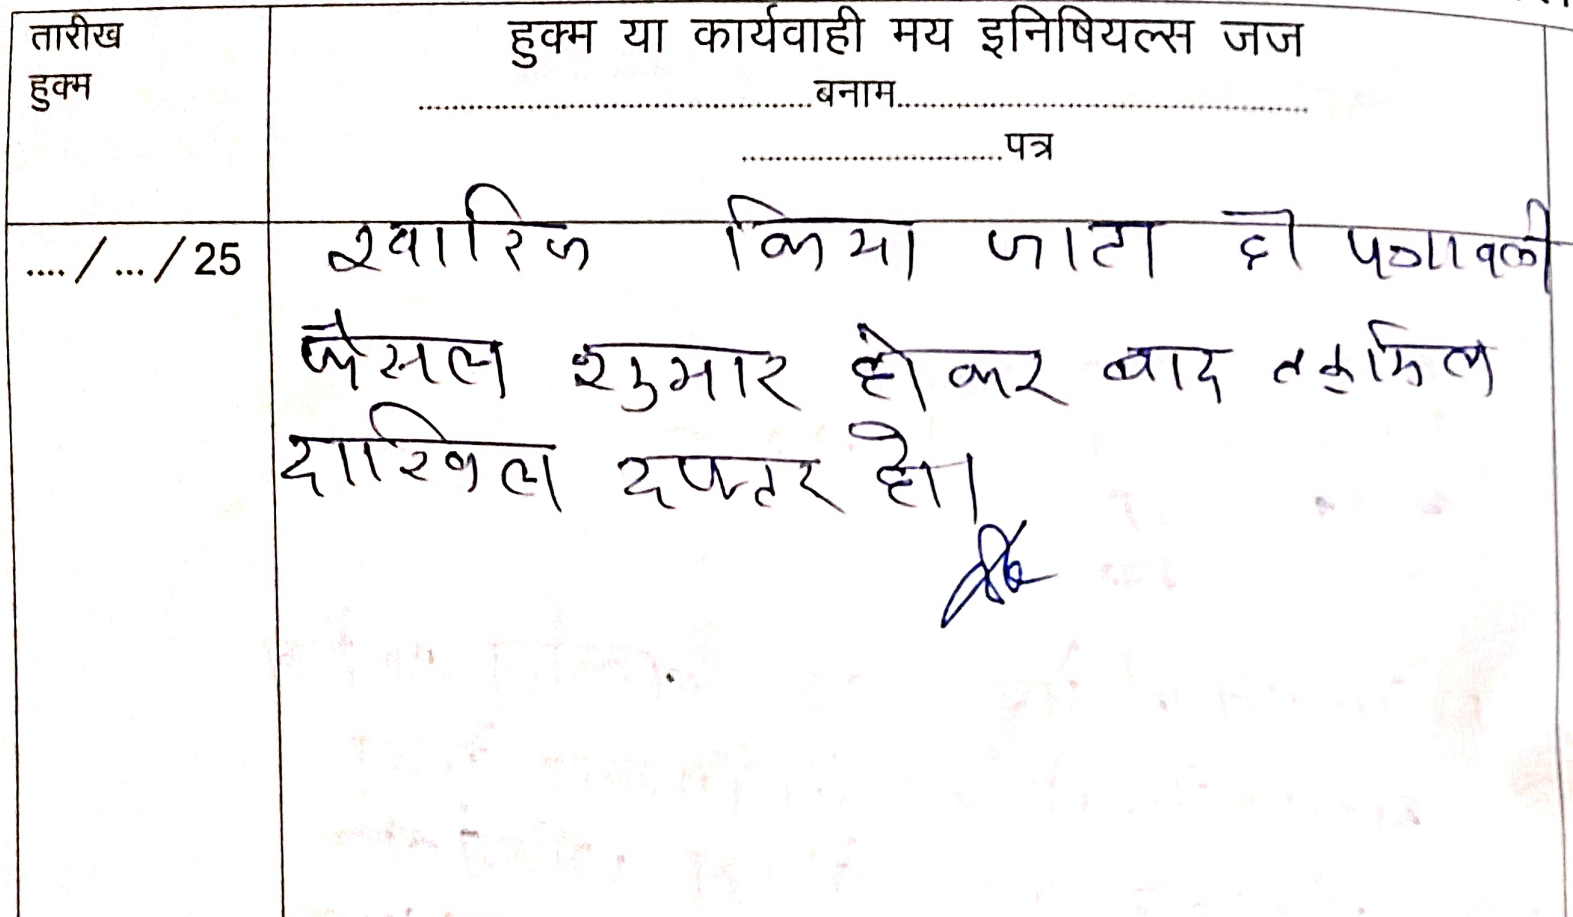 तारीख
हुक्म
हुक्म या कार्यवाही मय इनिषियल्स जज
....................बनाम....................
....................पत्र
.... / ... / 25
खारिज किया जाता है पत्रावली
फैसल शुमार होकर बाद तकमिल
दाखिल दफ्तर हो।